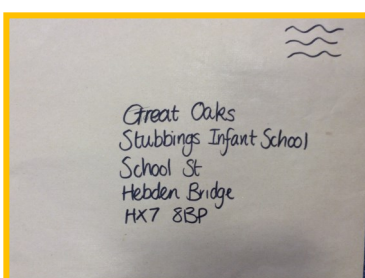 Great Oaks
Stubbings Infant School
School St
Hebden Bridge
HX7 8BP